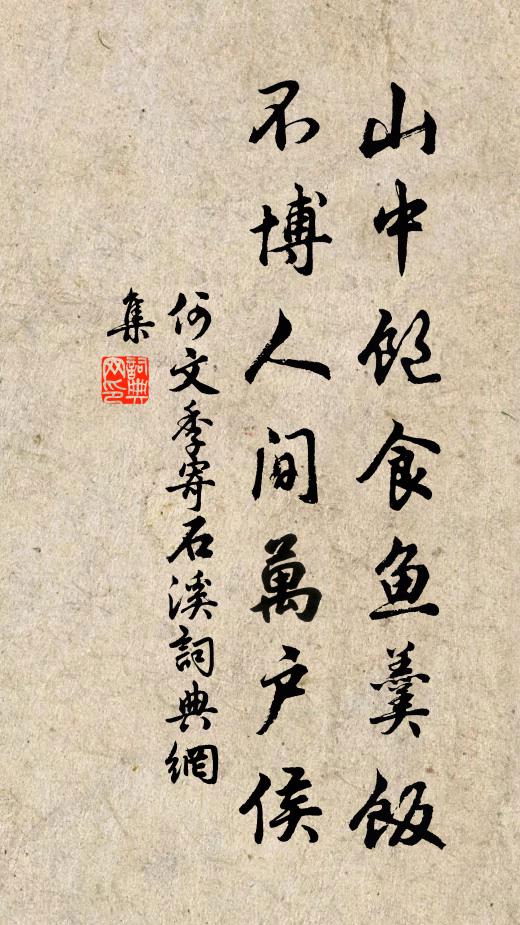 山中飽食鱼羹飯
不博人间萬户侯
何文季寄石溪詞典網
集
詞典网印